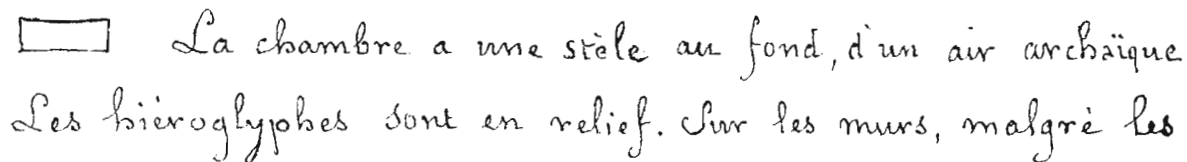 La chambre a une stèle au fond, d'un air archaïque
Les hiéroglyphes sont en relief. Sur les murs, malgré les